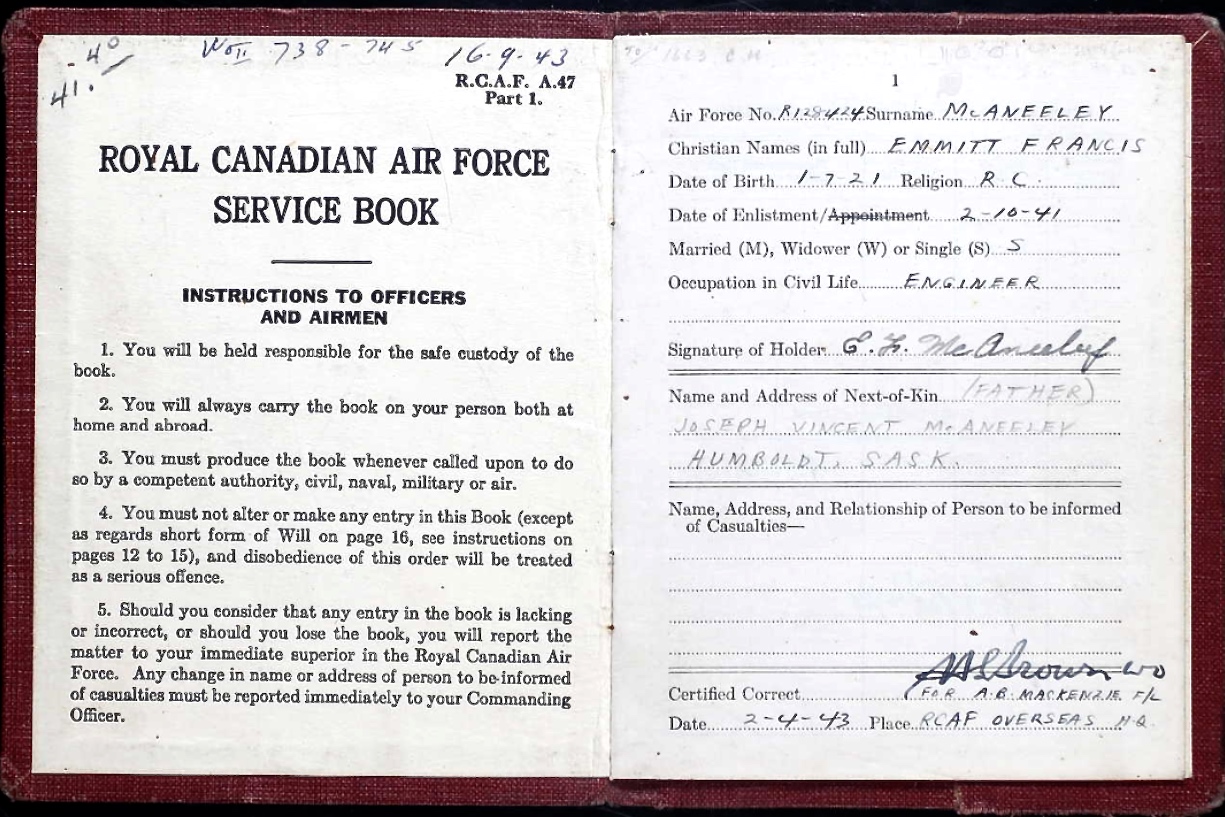 40/
41.
WOII 738-745 16-9-43
R.C.A.F. A.47
Part 1.
ROYAL CANADIAN AIR FORCE
SERVICE BOOK
INSTRUCTIONS TO OFFICERS
AND AIRMEN
1. You will be held responsible for the safe custody of the
book.
2. You will always carry the book on your person both at
home and abroad.
3. You must produce the book whenever called upon to do
so by a competent authority, civil, naval, military or air.
4. You must not alter or make any entry in this Book (except
as regards short form of Will on page 16, see instructions on
pages 12 to 15), and disobedience of this order will be treated
as a serious offence.
5. Should you consider that any entry in the book is lacking
or incorrect, or should you lose the book, you will report the
matter to your immediate superior in the Royal Canadian Air
Force. Any change in name or address of person to be informed
of casualties must be reported immediately to your Commanding
Officer.
1
Air Force No. R128424 Surname McANEELEY
Christian Names (in full) EMMITT FRANCIS
Date of Birth 1-7-21 Religion R.C.
Date of Enlistment/Appointment 2-10-41
Married (M), Widower (W) or Single (S) S
Occupation in Civil Life ENGINEER
Signature of Holder E. F. McAneeley
Name and Address of Next-of-Kin (FATHER)
JOSEPH VINCENT McANEELEY
HUMBOLDT, SASK.
Name, Address, and Relationship of Person to be informed
of Casualties—
Brown WO
Certified Correct (FOR A.B. MACKENZIE F/L
Date 2-4-43 Place RCAF OVERSEAS H.Q.